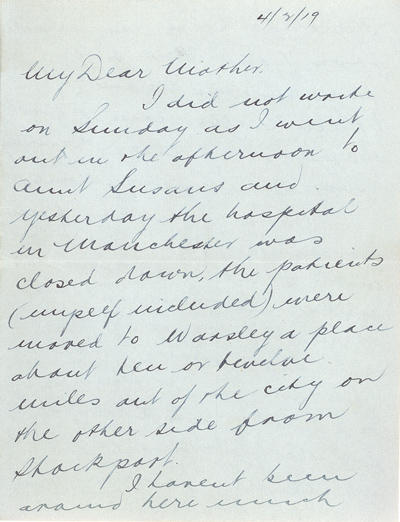 4/2/19
My Dear Mother.
I did not write
on Sunday as I went
out in the afternoon to
Aunt Susans and
yesterday the hospital
in Manchester was
closed down, the patients
(myself included) were
moved to Worsley a place
about ten or twelve
miles out of the city on
the other side from
Stockport.
I havent been
around here much